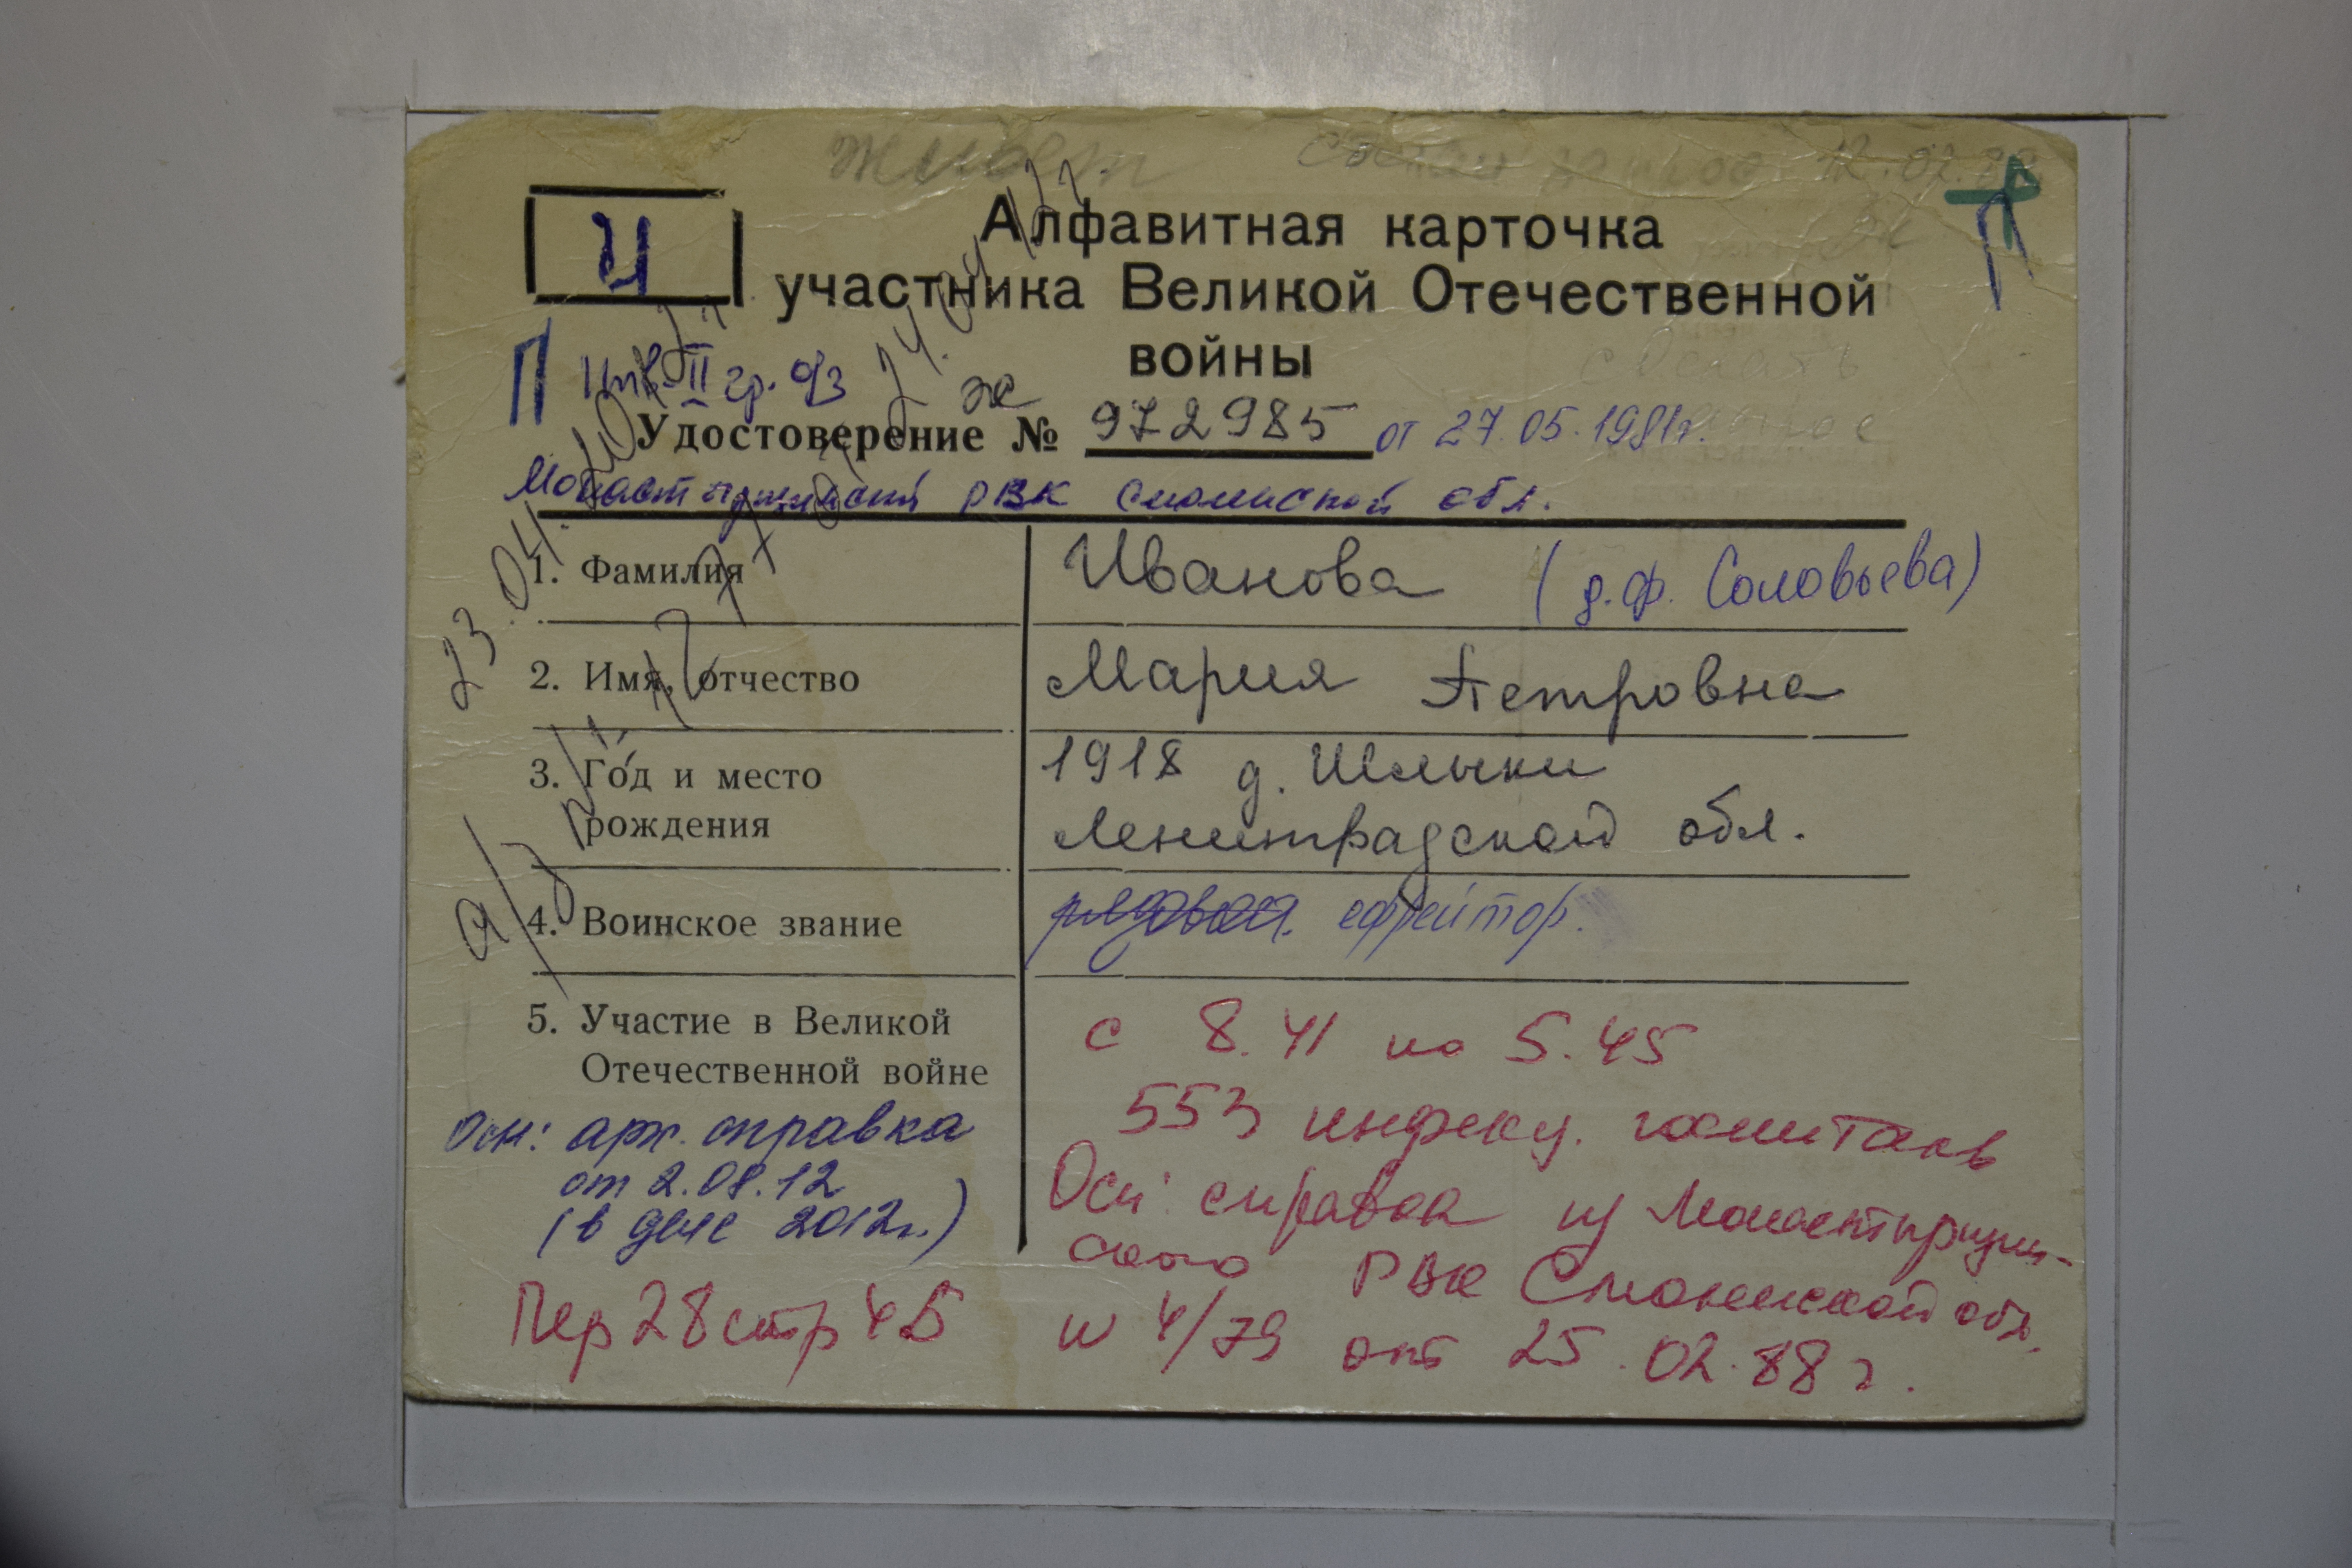 живет сделан запрос 12.02.88
И
Алфавитная карточка
участника Великой Отечественной
войны
П Инв. II гр. о/з
ж
Удостоверение № 972985 от 27.05.1981г.
Монастырщинский РВК Смоленской обл.
1. Фамилия Иванова (д.ф. Соловьева)
2. Имя, отчество Мария Петровна
3. Год и место 1918 д. Шлыки
рождения Ленинградской обл.
4. Воинское звание рядовая. ефрейтор.
5. Участие в Великой с 8.41 по 5.45
Отечественной войне 553 инфекц. госпиталь
Осн: арх. справка Осн: справка из Монастырщин-
от 2.08.12 ского РВК Смоленской обл.
(в деле 2012г.)
Пер 28 стр 45 № 4/79 от 25.02.88 г.
сделать